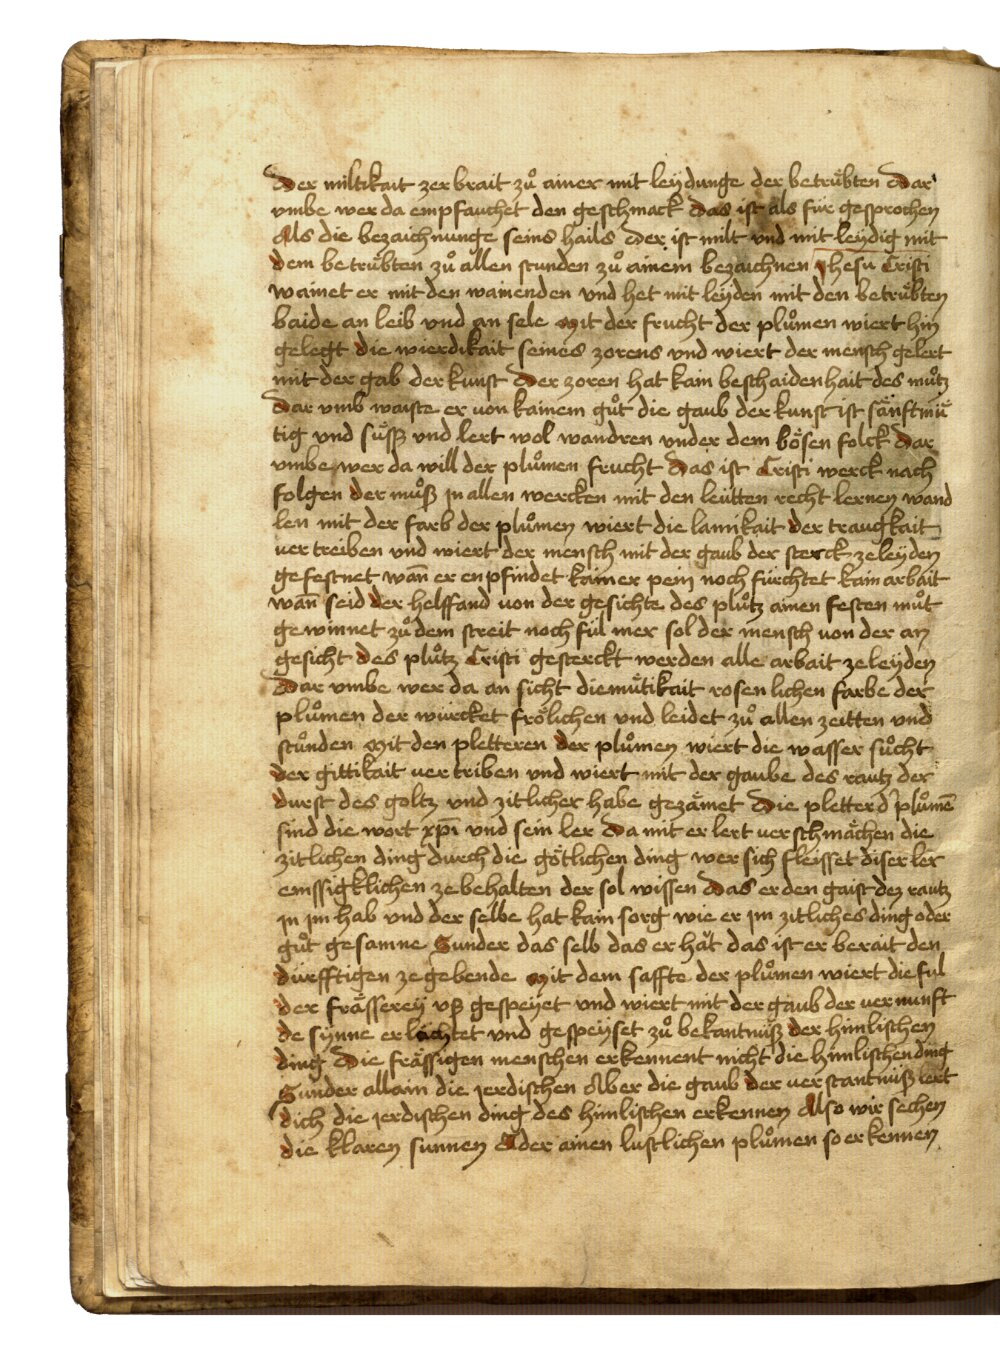 Der miltikait zer brait zuͦ ainer mit leÿdunge der betruͤbten Dar
vmbe wer da empfauchet den geschmack das ist als für gesprochen
Als die bezaichnunge seins hails Der ist milt vnd mit leÿdig mit
dem betruͤbten zuͦ allen stunden zuͦ ainem bezaichnen Jhesu Cristi
wainet er mit den wainenden vnd het mit leÿden mit den betruͤbten
baide an leib vnd an sele Mit der frucht der pluͦmen wiert hin
gelegt die wierdikait seines zorens vnd wiert der mensch gelert
mit der gab der kunst Der zoren hat kain beschaidenhait des muͦtz
Dar vmb waiste er von kainem guͦt die gaub der kunst ist sänftmuͤ
tig vnd suͤsß vnd lert wol wandren vnder dem boͤsen folck Dar
vmbe wer da will der pluͦmen frucht Das ist Cristi werck nach
folgen der muͦß jn allen wercken mit den leütten recht lernen wand
len mit der farb der pluͦmen wiert die lamikait der traugkait
ver treiben vnd wiert der mensch mit der gaub der sterck ze leÿden
gefestnet wan̄ er enpfindet kainer pein noch fürchtet kain arbait
wan̄ seid der helffand von der gesichte des pluͦtz ainen festen muͦt
gewinnet zuͦ dem streit noch fül mer sol der mensch von der an
gesicht des pluͦtz Cristi gesterckt werden alle arbait ze leÿden
Dar vmbe wer da an sicht diemuͤtikait rosenlichen farbe der
pluͦmen der würcket froͤlichen vnd leidet zuͦ allen zeitten vnd
stuͦnden Mit den pletteren der pluͦmen wiert die wasser suͦcht
der gittikait ver triben vnd wiert mit der gaube des rautz der
durst des goltz vnd zitlicher habe gezämet Die pletter d' pluͦmē
sind die wort xp̄i vnd sein ler Da mit er lert ver schmächen die
zitlichen ding durch die goͤtlichen ding wer sich fleisset diser ler
emssigklichen ze behalten der sol wissen Das er den gaist dez rautz
jn jm hab vnd der selbe hat kain sorg wie er jm zitliches ding oder
guͦt gesamne Sunder das selb das er hät das ist er berait den
dürfftigen ze gebende Mit dem saffte der pluͦmen wiert die ful
der frässereÿ vß gespeÿet vnd wiert mit der gaub der vernunft
de sÿnne erlöchtet vnd gespeÿset zuͦ bekantnüß der himlischen
ding Die frässigen menschen erkennent nicht die himlischen ding
Sunder allain die jerdischen Aber die gaub der verstantnüß lert
dich die jerdischen ding des himlischen erkennen Also wir sechen
die klaren sunnen Ader ainen lustlichen pluͦmen so erkennen